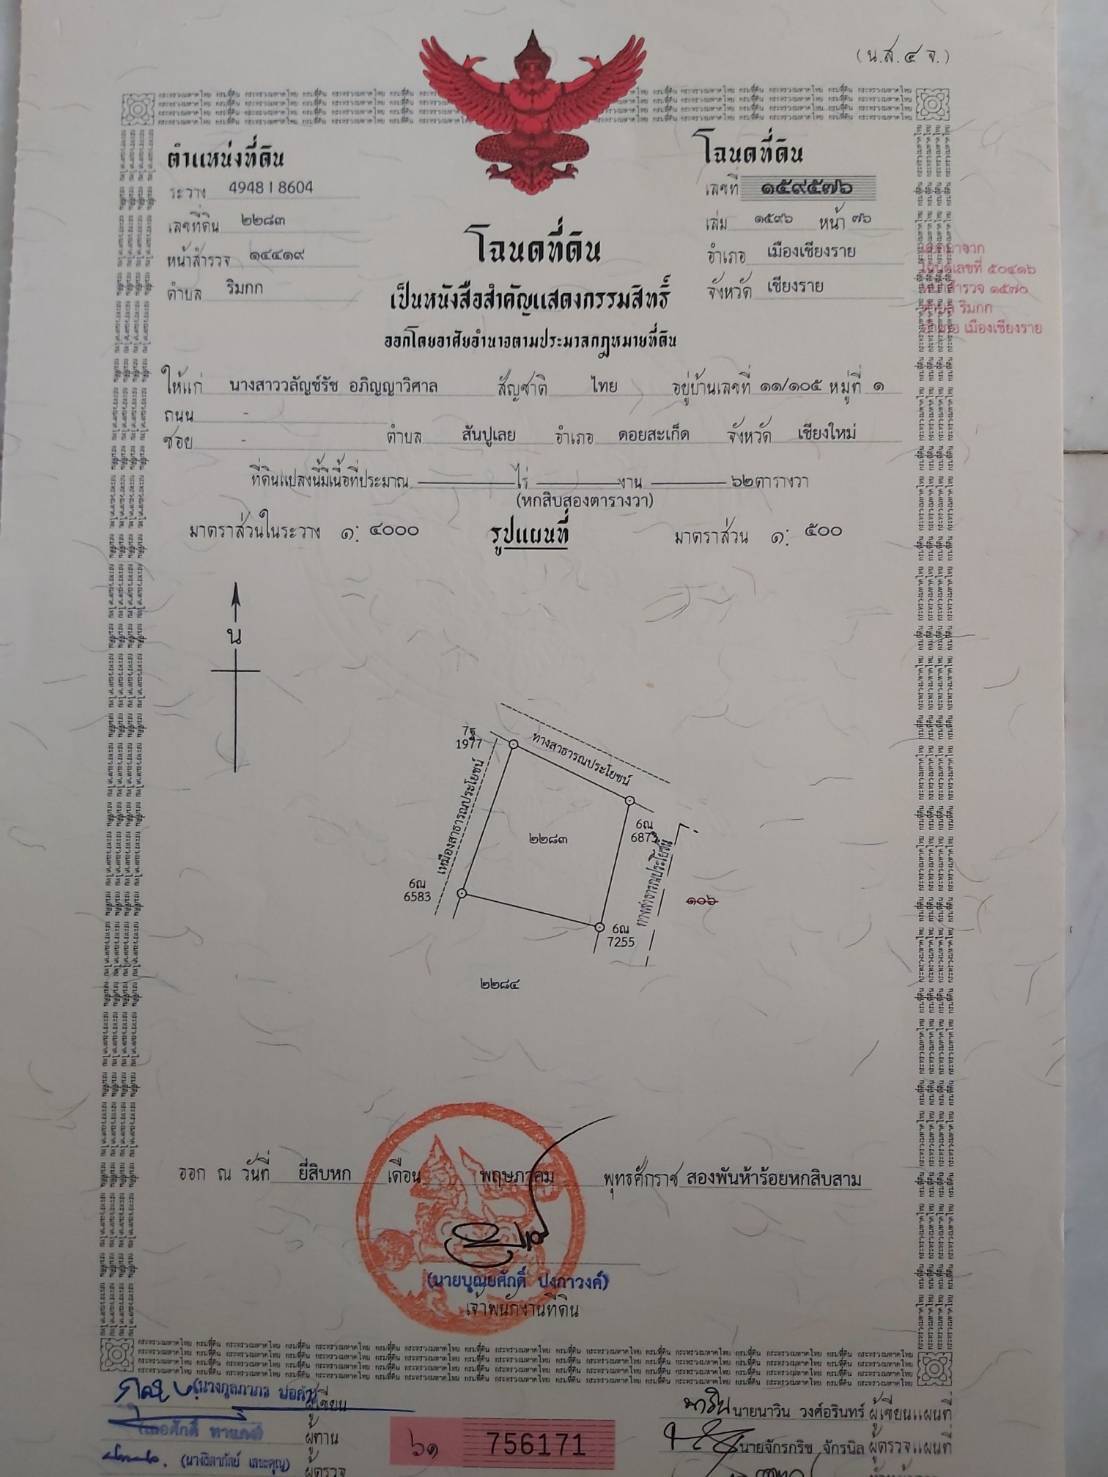 (น.ส. ๔ จ.)
ตำแหน่งที่ดิน
ระวาง 4948 I 8604
เลขที่ดิน ๒๒๘๓
หน้าสำรวจ ๑๔๔๑๙
ตำบล ริมกก
โฉนดที่ดิน
เลขที่ ๑๕๙๕๗๖
เล่ม ๑๕๙๖ หน้า ๗๖
อำเภอ เมืองเชียงราย
จังหวัด เชียงราย
เลขที่ ๕๐๔๑๖
สำรวจ ๑๕๗๐
ริมกก
เมืองเชียงราย
โฉนดที่ดิน
เป็นหนังสือสำคัญแสดงกรรมสิทธิ์
ออกโดยอาศัยอำนาจตามประมวลกฎหมายที่ดิน
ให้แก่ นางสาววลัญช์รัช อภิญญาวิศาล สัญชาติ ไทย อยู่บ้านเลขที่ ๑๑/๑๐๕ หมู่ที่ ๑
ถนน -
ซอย - ตำบล สันปูเลย อำเภอ ดอยสะเก็ด จังหวัด เชียงใหม่
ที่ดินแปลงนี้มีเนื้อที่ประมาณ ——— ไร่ ——— งาน ——— ๖๒ ตารางวา
(หกสิบสองตารางวา)
มาตราส่วนในระวาง ๑: ๔๐๐๐ รูปแผนที่ มาตราส่วน ๑: ๕๐๐
น
1977
ทางสาธารณประโยชน์
เหมืองสาธารณประโยชน์
๒๒๘๓
6ณ
6873
ทางสาธารณประโยชน์
6ณ
6583
๑๐๖
6ณ
7255
๒๒๘๔
ออก ณ วันที่ ยี่สิบหก เดือน พฤษภาคม พุทธศักราช สองพันห้าร้อยหกสิบสาม
(นายบุณยศักดิ์ ปงกาวงค์)
เจ้าพนักงานที่ดิน
ผู้เขียน
ผู้ทาน
ผู้ตรวจ
๖๑ 756171
นายนาวิน วงศ์อรินทร์ ผู้เขียนแผนที่
นายจักรกริช จักรนิล ผู้ตรวจแผนที่